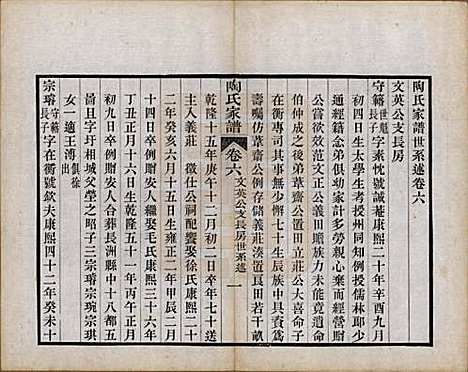 陶氏家譜世系述卷六
文英公支長房
守籍世魁長子字素忱號誠菴康熙二十年辛酉九月
初四日生太學生考授州同知例授儒林郎少
通經籍念弟俱幼家計多勞親心棄而經營贈
公嘗欲效范文正公義田贍族力未能竟遺命
伯仲成之後弟葦齋公置田立莊公大喜命子
在衡專司其事無少懈七十生辰族中具賁爲
壽囑仿葦齋公例存儲義莊湊置良田若干畝
陶氏家譜
卷六
文英公支長房世系述
一
乾隆十五年庚午十二月初二日卒年七十送
主入義莊 徵仕公祠配許氏康熙二十
二年癸亥六月十五日生雍正二年甲辰二月
十四日卒例贈安人繼娶毛氏康熙三十六年
丁丑正月十六日生乾隆五十一年丙午正月
初九日卒例贈安人合葬長洲縣中十八都五
啚且字圩相城父塋之昭子三宗璿宗琬宗琪
女一適王溥俱徐出
宗璿守籍長子字在衡號欽夫康熙四十二年癸未十